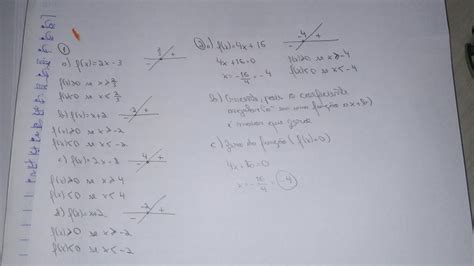 1
a) f(x)=2x-3
f(x)≥0 se x≥3/2
f(x)<0 se x<3/2
b) f(x)=x+2
-2
- +
f(x)≥0 se x≥-2
f(x)<0 se x<-2
c) f(x)=2x-8
4 +
-
f(x)≥0 se x≥4
f(x)<0 se x<4
d) f(x)=x+2
-2 +
-
f(x)≥0 se x≥-2
f(x)<0 se x<-2
2 a) f(x)=4x+16
4x+16=0
x=-16/4=-4
-4 +
-
f(x)≥0 se x≥-4
f(x)<0 se x<-4
b) Crescente, pois o coeficiente
angular (a em uma função ax+b)
é maior que zero
c) Zero da função (f(x)=0)
4x+16=0
x=-16/4=-4